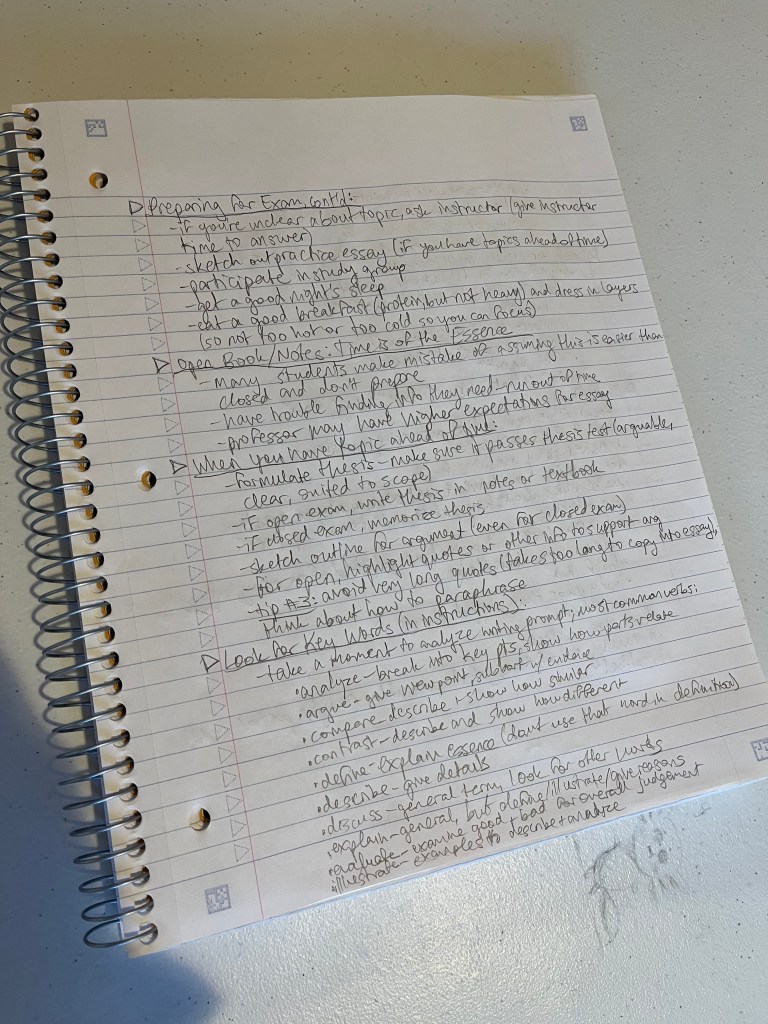 Preparing for Exam, cont'd:
- if you're unclear about topic, ask instructor (give instructor
time to answer)
- sketch out practice essay (if you have topics ahead of time)
- participate in study group
- get a good night's sleep
- eat a good breakfast (protein, but not heavy) and dress in layers
(so not too hot or too cold so you can focus)
Open Book/Notes: Time is of the Essence
- Many students make mistake of assuming this is easier than
closed and don't prepare
- have trouble finding info they need - run out of time
- professor may have higher expectations for essay
When you have topic ahead of time:
- Formulate thesis - make sure it passes thesis test (arguable,
clear, suited to scope)
- if open exam, write thesis in notes or textbook
- if closed exam, memorize thesis
- sketch outline for argument (even for closed exam)
- for open, highlight quotes or other info to support arg
- tip #3: avoid very long quotes (takes too long to copy into essay),
think about how to paraphrase
Look for Key Words (in instructions):
- take a moment to analyze writing prompt; most common verbs:
• analyze - break into key pts, show how parts relate
• argue - give viewpoint, support w/ evidence
• compare - describe + show how similar
• contrast - describe and show how different
• define - explain essence (don't use that word in definition)
• describe - give details
• discuss - general term, look for other words
• explain - general, but define/illustrate/give reasons
• evaluate - examine good + bad for overall judgement
• illustrate - examples to describe + analyze